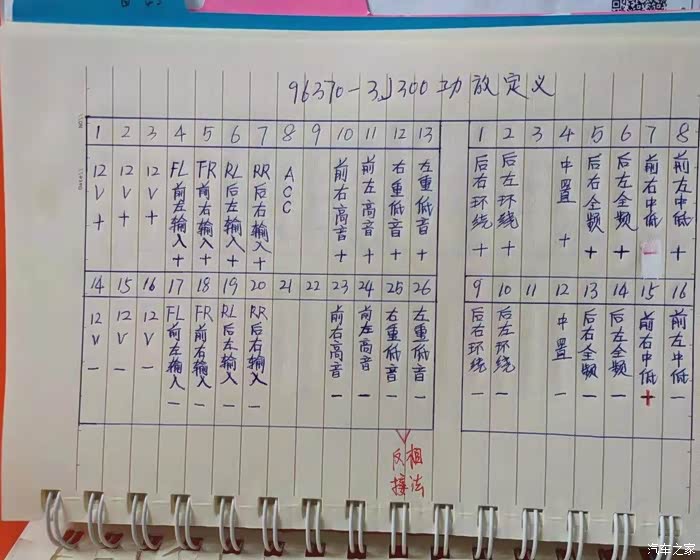 96370-3J300功放定义
1 2 3 4 5 6 7 8 9 10 11 12 13
12V+ 12V+ 12V+ FL前左输入+ FR前右输入+ RL后左输入+ RR后右输入+ ACC 前右高音+ 前左高音+ 右重低音+ 左重低音+
14 15 16 17 18 19 20 21 22 23 24 25 26
12V- 12V- 12V- FL前左输入- FR前右输入- RL后左输入- RR后右输入- 前右高音- 前左高音- 右重低音- 左重低音-
反相
接法
1 2 3 4 5 6 7 8
后右环绕+ 后左环绕+ 中置+ 后右全频+ 后左全频+ 前右中低- 前左中低+
9 10 11 12 13 14 15 16
后右环绕- 后左环绕- 中置- 后右全频- 后左全频- 前右中低+ 前左中低-
汽车之家